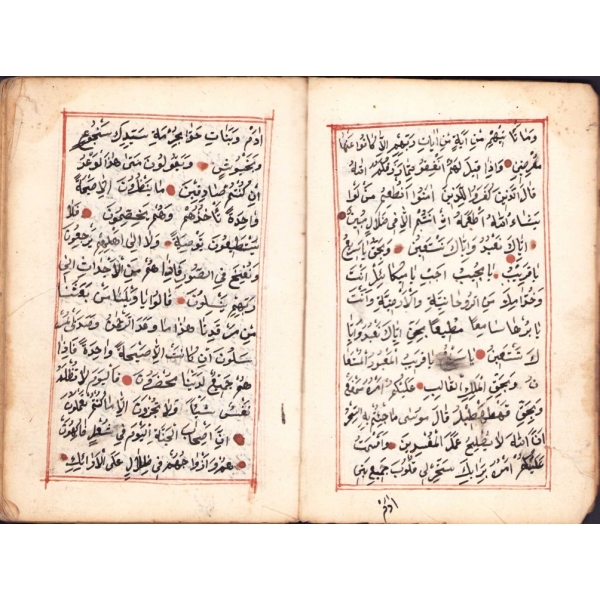 وما تأتيهم من آية من آيات ربهم الا كانوا عنها
معرضين واذا قيل لهم انفقوا مما رزقكم الله
قال الذين كفروا للذين امنوا انطعم من لو
يشاء الله اطعمه ان انتم الا فى ضلال مبين
اياك نعبد واياك نستعين وبحق يا سريع
يا قريب يا مجيب اجب يا ميكائيل انت
وخدامك من الروحانية والارضية وانت
يا برخا سامعا مطيعا بحق اياك نعبد وايا
ك نستعين يا سريع يا قريب المعبود المستعا
ن وبحق الملك الغالب عليكم امره
وبحق قال موسى ما جئتم به السحر
ان الله لا يصلح عمل المفسدين واقسمت
عليكم سخر لى قلوب جميع بنى
ادم
ادم وبنات حوا بحرمة سيدك
ويقولون متى هذا الوعد
ان كنتم صادقين ما ينظرون الا صيحة
واحدة تأخذهم وهم يخصمون فلا
يستطيعون توصية ولا الى اهلهم يرجعون
ونفخ فى الصور فاذا هم من الاجداث الى
ربهم ينسلون قالوا يا ويلنا من بعثنا
من مرقدنا هذا ما وعد الرحمن وصدق المر
سلون ان كانت الا صيحة واحدة فاذا
هم جميع لدينا محضرون فاليوم لا تظلم
نفس شيئا ولا تجزون الا ما كنتم تعملون
ان اصحاب الجنة اليوم فى شغل فاكهون
هم وازواجهم فى ظلال على الارائك